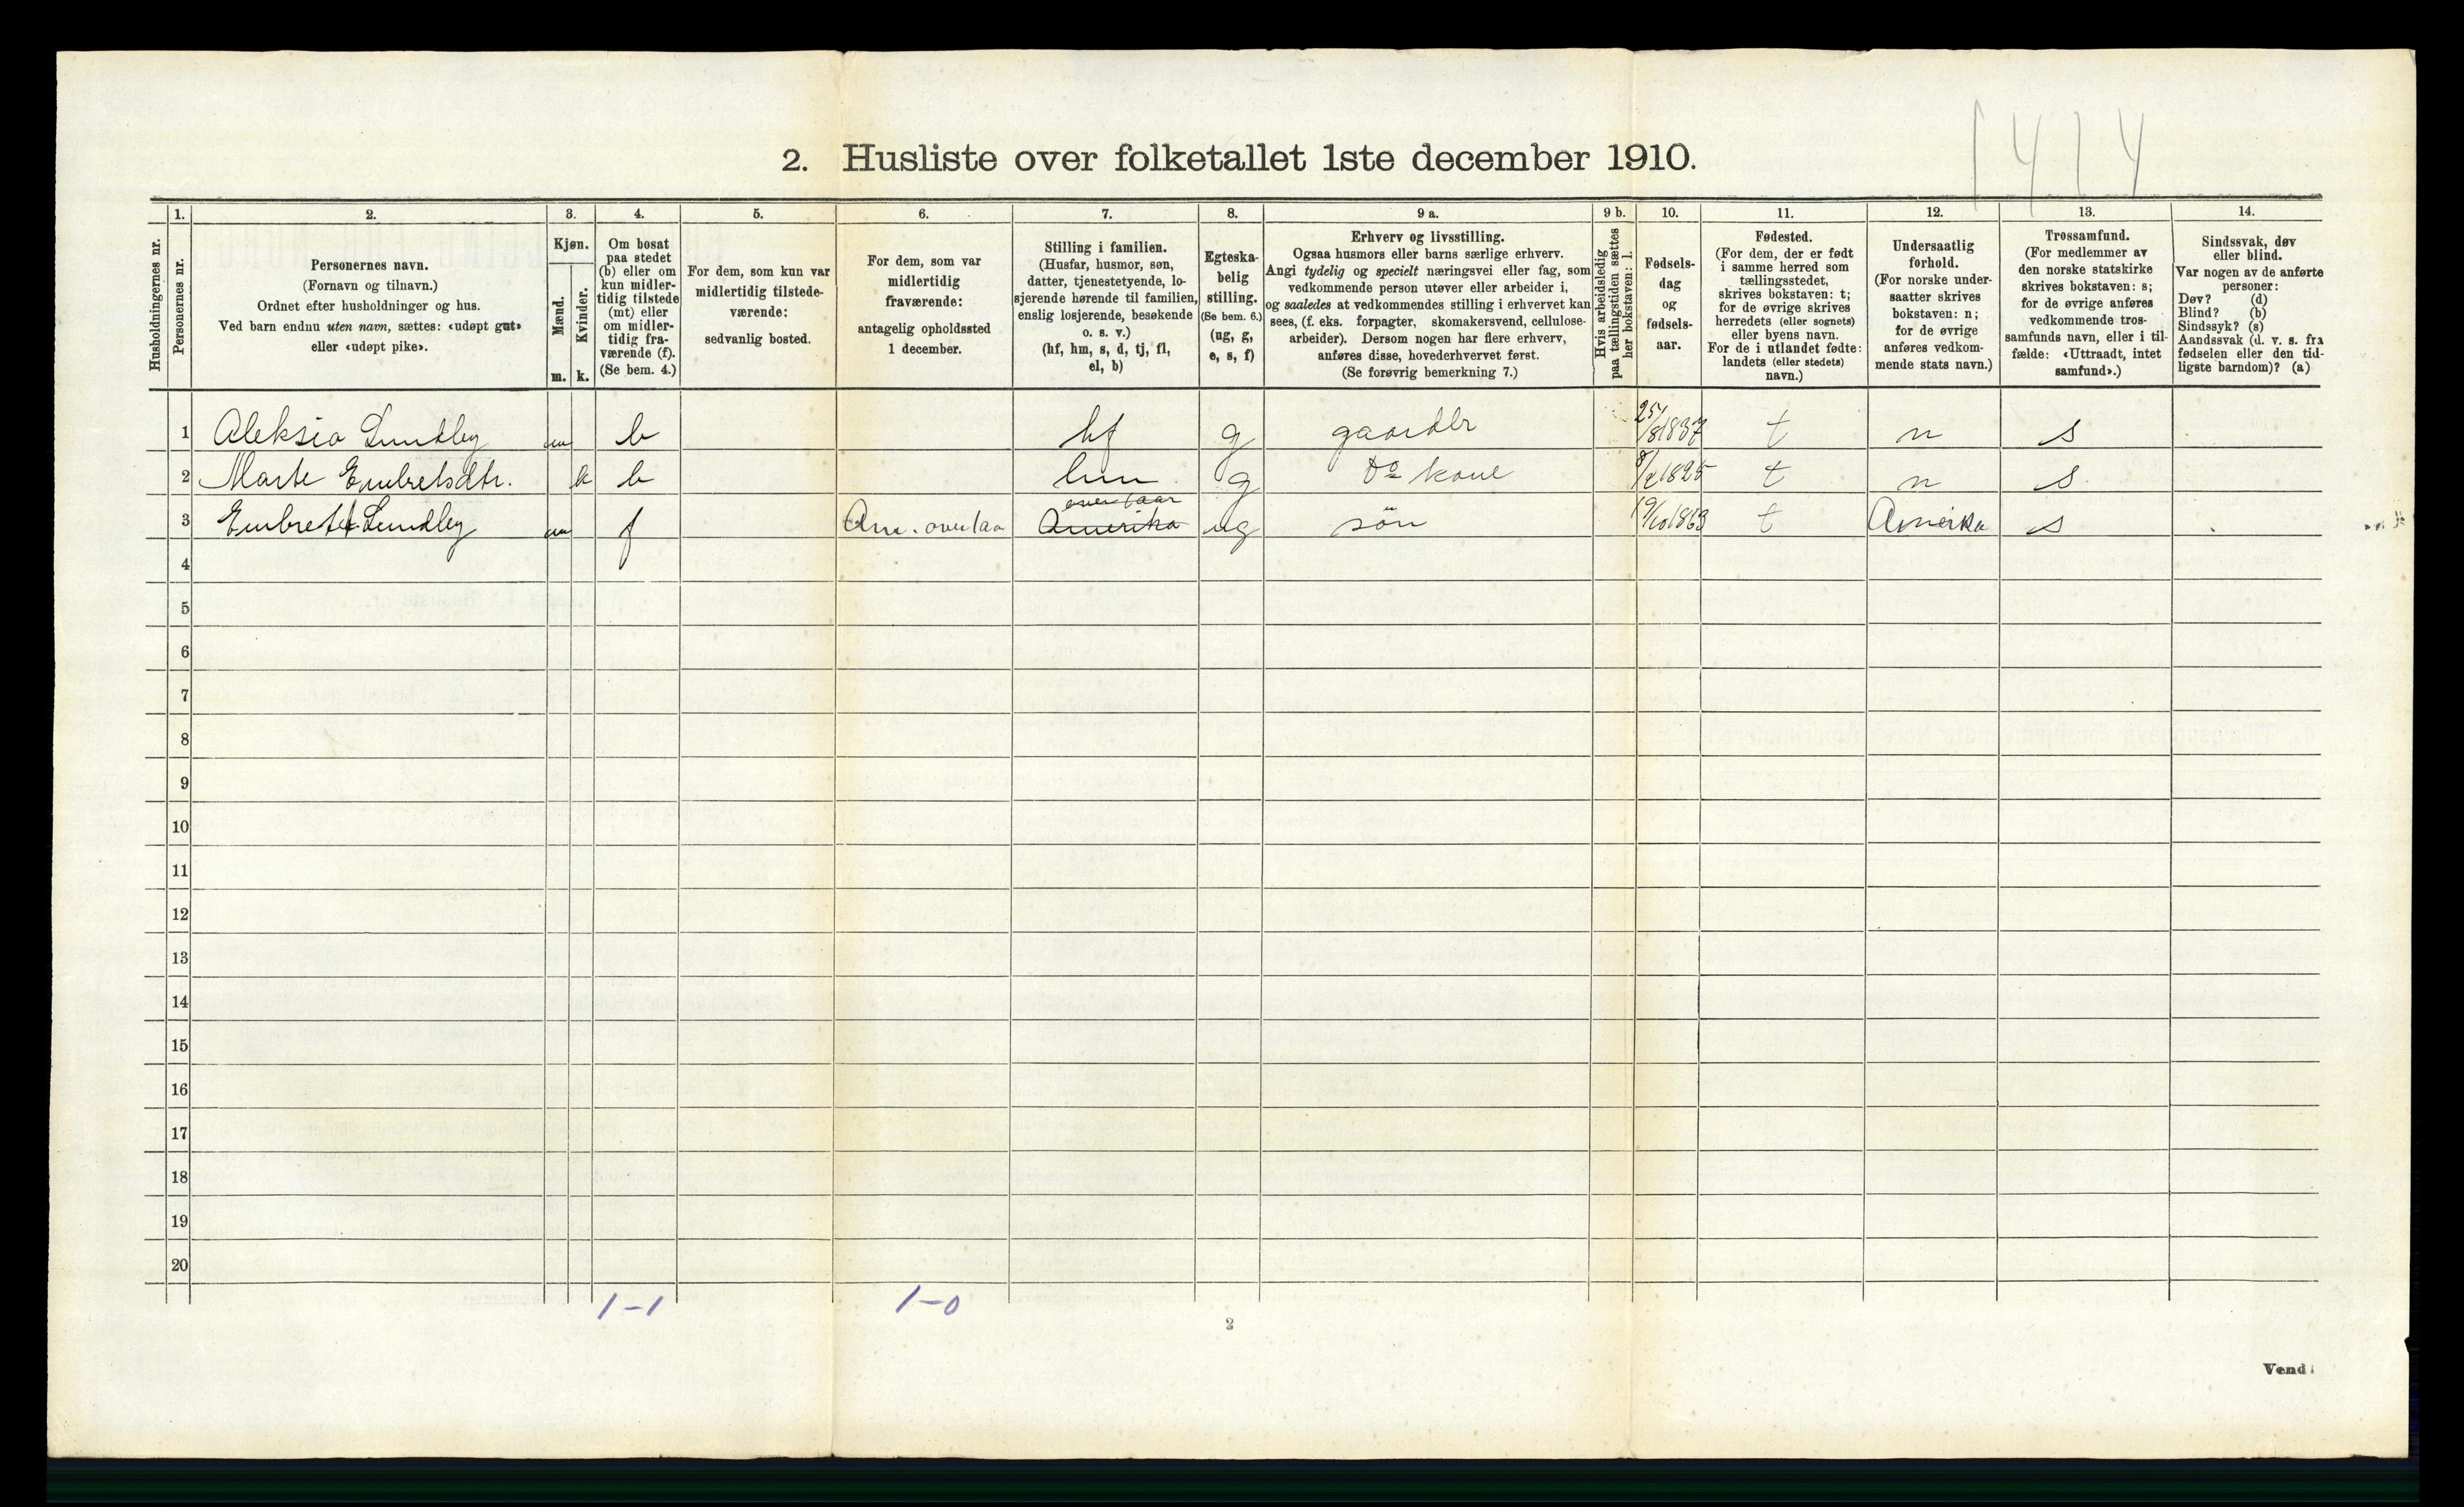 1414
2. Husliste over folketallet 1ste december 1910.
Husholdningernes nr.
1. Personernes nr.
2. Personernes navn.
(Fornavn og tilnavn.)
Ordnet efter husholdninger og hus.
Ved barn endnu uten navn, sættes: «udøpt gut»
eller «udøpt pike».
3. Kjøn.
Mænd. m.
Kvinder. k.
4. Om bosat
paa stedet
(b) eller om
kun midler-
tidig tilstede
(mt) eller
om midler-
tidig fra-
værende (f).
(Se bem. 4.)
5. For dem, som kun var
midlertidig tilstede-
værende:
sedvanlig bosted.
6. For dem, som var
midlertidig
fraværende:
antagelig opholdssted
1 december.
7. Stilling i familien.
(Husfar, husmor, søn,
datter, tjenestetyende, lo-
sjerende hørende til familien,
enslig losjerende, besøkende
o. s. v.)
(hf, hm, s, d, tj, fl,
el, b)
8. Egteska-
belig
stilling.
(Se bem. 6.)
(ug, g,
e, s, f)
9 a. Erhverv og livsstilling.
Ogsaa husmors eller barns særlige erhverv.
Angi tydelig og specielt næringsvei eller fag, som
vedkommende person utøver eller arbeider i,
og saaledes at vedkommendes stilling i erhvervet kan
sees, (f. eks. forpagter, skomakersvend, cellulose-
arbeider). Dersom nogen har flere erhverv,
anføres disse, hovederhvervet først.
(Se forøvrig bemerkning 7.)
9 b. Hvis arbeidsledig
paa tællingstiden sættes
her bokstaven: l.
10. Fødsels-
dag
og
fødsels-
aar.
11. Fødested.
(For dem, der er født
i samme herred som
tællingsstedet,
skrives bokstaven: t;
for de øvrige skrives
herredets (eller sognets)
eller byens navn.
For de i utlandet fødte:
landets (eller stedets)
navn.)
12. Undersaatlig
forhold.
(For norske under-
saatter skrives
bokstaven: n;
for de øvrige
anføres vedkom-
mende stats navn.)
13. Trossamfund.
(For medlemmer av
den norske statskirke
skrives bokstaven: s;
for de øvrige anføres
vedkommende tros-
samfunds navn, eller i til-
fælde: «Uttraadt, intet
samfund».)
14. Sindssvak, døv
eller blind.
Var nogen av de anførte
personer:
Døv? (d)
Blind? (b)
Sindssyk? (s)
Aandssvak (d. v. s. fra
fødselen eller den tid-
ligste barndom)? (a)
1 Aleksia Lundby m b hf g gaardbr 25/8 1837 t n s
2 Marte Embretsdtr. k b hm g do kone 1825 t n s
3 Embret Lundby m f Am. over 1 aar Amerika ug søn 19/10 1863 t Amerika s
4
5
6
7
8
9
10
11
12
13
14
15
16
17
18
19
20
1-1 1-0
2
Vend!